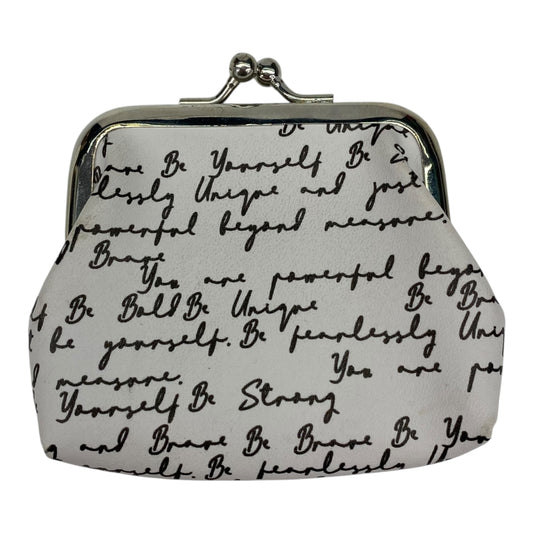 Be Unique
Be Yourself Be
lessly Unique and just
powerful beyond measure.
Brave
You are powerful beyon
Be Bold Be Unique Be Bra
be yourself. Be fearlessly Uni
measure. You are po
Yourself Be Strong
and Brave Be Brave Be You
yourself. Be fearlessly U